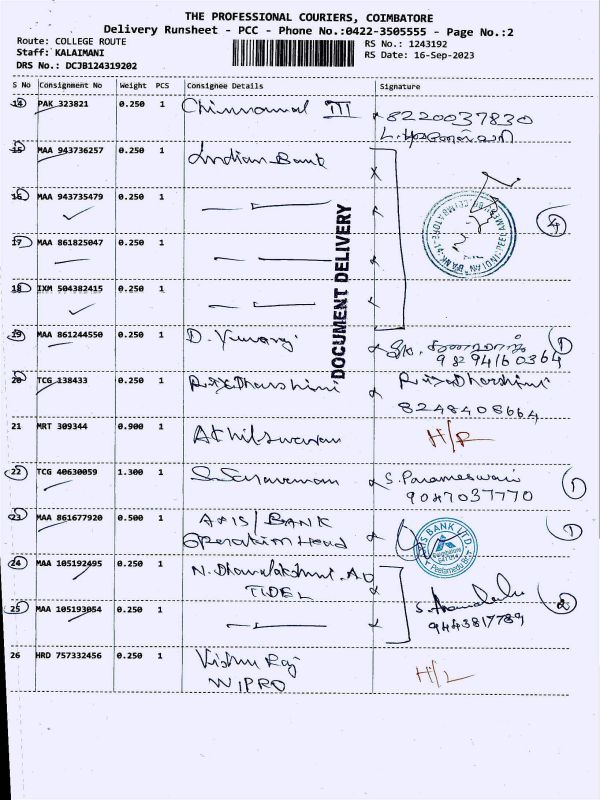 THE PROFESSIONAL COURIERS, COIMBATORE
Delivery Runsheet - PCC - Phone No.:0422-3505555 - Page No.:2
Route: COLLEGE ROUTE
Staff: KALAIMANI
DRS No.: DCJB124319202
RS No.: 1243192
RS Date: 16-Sep-2023
S No Consignment No Weight PCS Consignee Details Signature
14 PAK 323821 0.250 1 III 8220037830
15 MAA 943736257 0.250 1 Indian Bank
16 MAA 943735479 0.250 1
17 MAA 861825047 0.250 1
18 IXM 504382415 0.250 1
DOCUMENT DELIVERY
4
19 MAA 861244550 0.250 1 D. 9829416 0364 1
20 TCG 138433 0.250 1
8248408664
21 MRT 309344 0.900 1
22 TCG 40630059 1.300 1 S. Saravanan S. Parameswari 1
9047037770
23 MAA 861677920 0.500 1 AXIS/BANK 1
Operation Head
24 MAA 105192495 0.250 1 N. Dhanalakshmi
TIDEL
25 MAA 105193054 0.250 1 2
9443817789
26 HRD 757332456 0.250 1 Vishnu Raj H/L
WIPRO